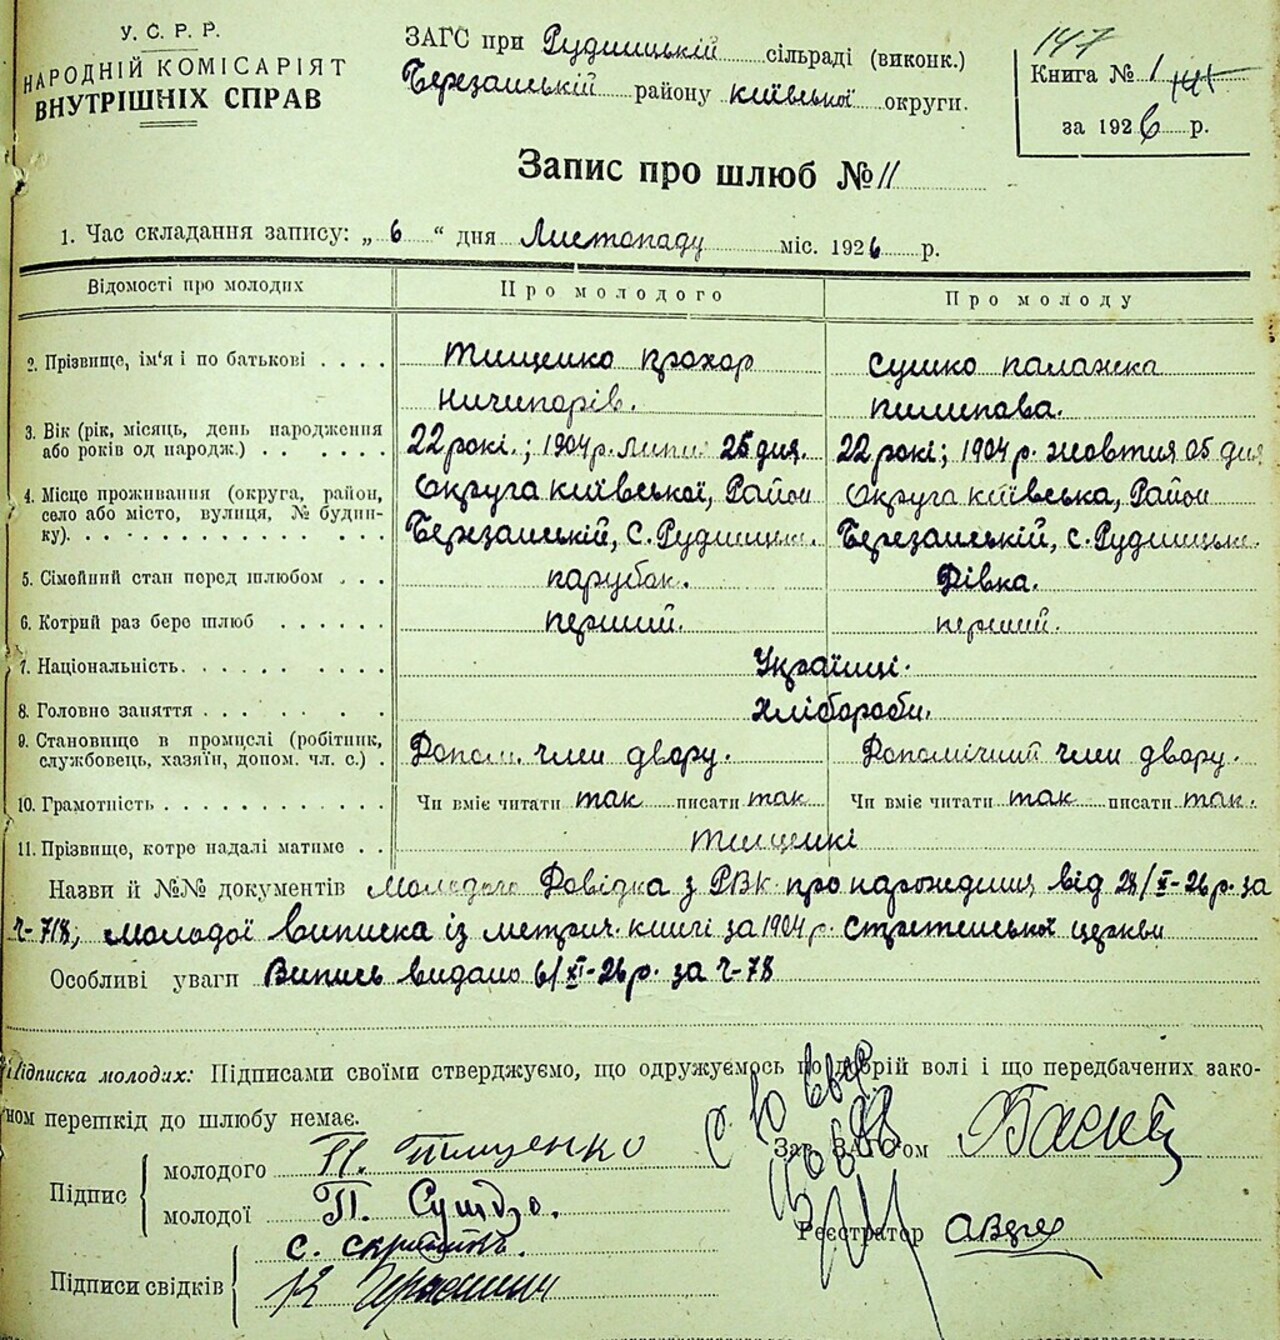 У. С. Р. Р.
НАРОДНІЙ КОМІСАРІЯТ
ВНУТРІШНІХ СПРАВ
ЗАГС при Рудницькій сільраді (виконк.)
Березанській району київської округи.
147
Книга № 1
за 1926 р.
Запис про шлюб № 11
1. Час складання запису: „ 6 “ дня Листопаду міс. 1926 р.
Відомості про молодих
Про молодого
Про молоду
2. Прізвище, ім'я і по батькові . . . .
Тищенко Прохор
Ничипорів.
Сушко Палажка
Пилипова.
3. Вік (рік, місяць, день народження
або років од народж.) . . . . . .
22 рокі.; 1904 р. Липн 25 дня.
22 рокі; 1904 р. жовтня 05 дня
4. Місце проживання (округа, район,
село або місто, вулиця, № будин-
ку). . . . . . . . . . . . . . .
Округа київської, Район
Березанській, С. Рудницьк.
Округа київська, Район
Березанській, с. Рудницьк.
5. Сімейний стан перед шлюбом . . .
парубок.
Дівка.
6. Котрий раз бере шлюб . . . . . .
перший.
перший.
7. Національність. . . . . . . . .
Українці.
8. Головне заняття . . . . . . . .
Хлібороби.
9. Становище в промислі (робітник,
службовець, хазяїн, допом. чл. с.) .
Допом. член двору.
Допомічний член двору.
10. Грамотність . . . . . . . . . . . .
Чи вміє читати так писати так
Чи вміє читати так писати так.
11. Прізвище, котре надалі матиме . .
Тищенкі
Назви й №№ документів Молодого Довідка з РВК про народження від 28/X-26 р. за
ч-718, молодої Виписка із метрич. книгі за 1904 р. Стретенської церкви
Особливі уваги Випись видано 6/XI-26 р. за ч-78
Підписка молодих: Підписами своїми стверджуємо, що одружуємось по добрій волі і що передбачених зако-
ном перешкід до шлюбу немає.
Підпис
молодого П. Тищенко
молодої П. Сушко.
Зав. ЗАГСом
Реєстратор
Підписи свідків